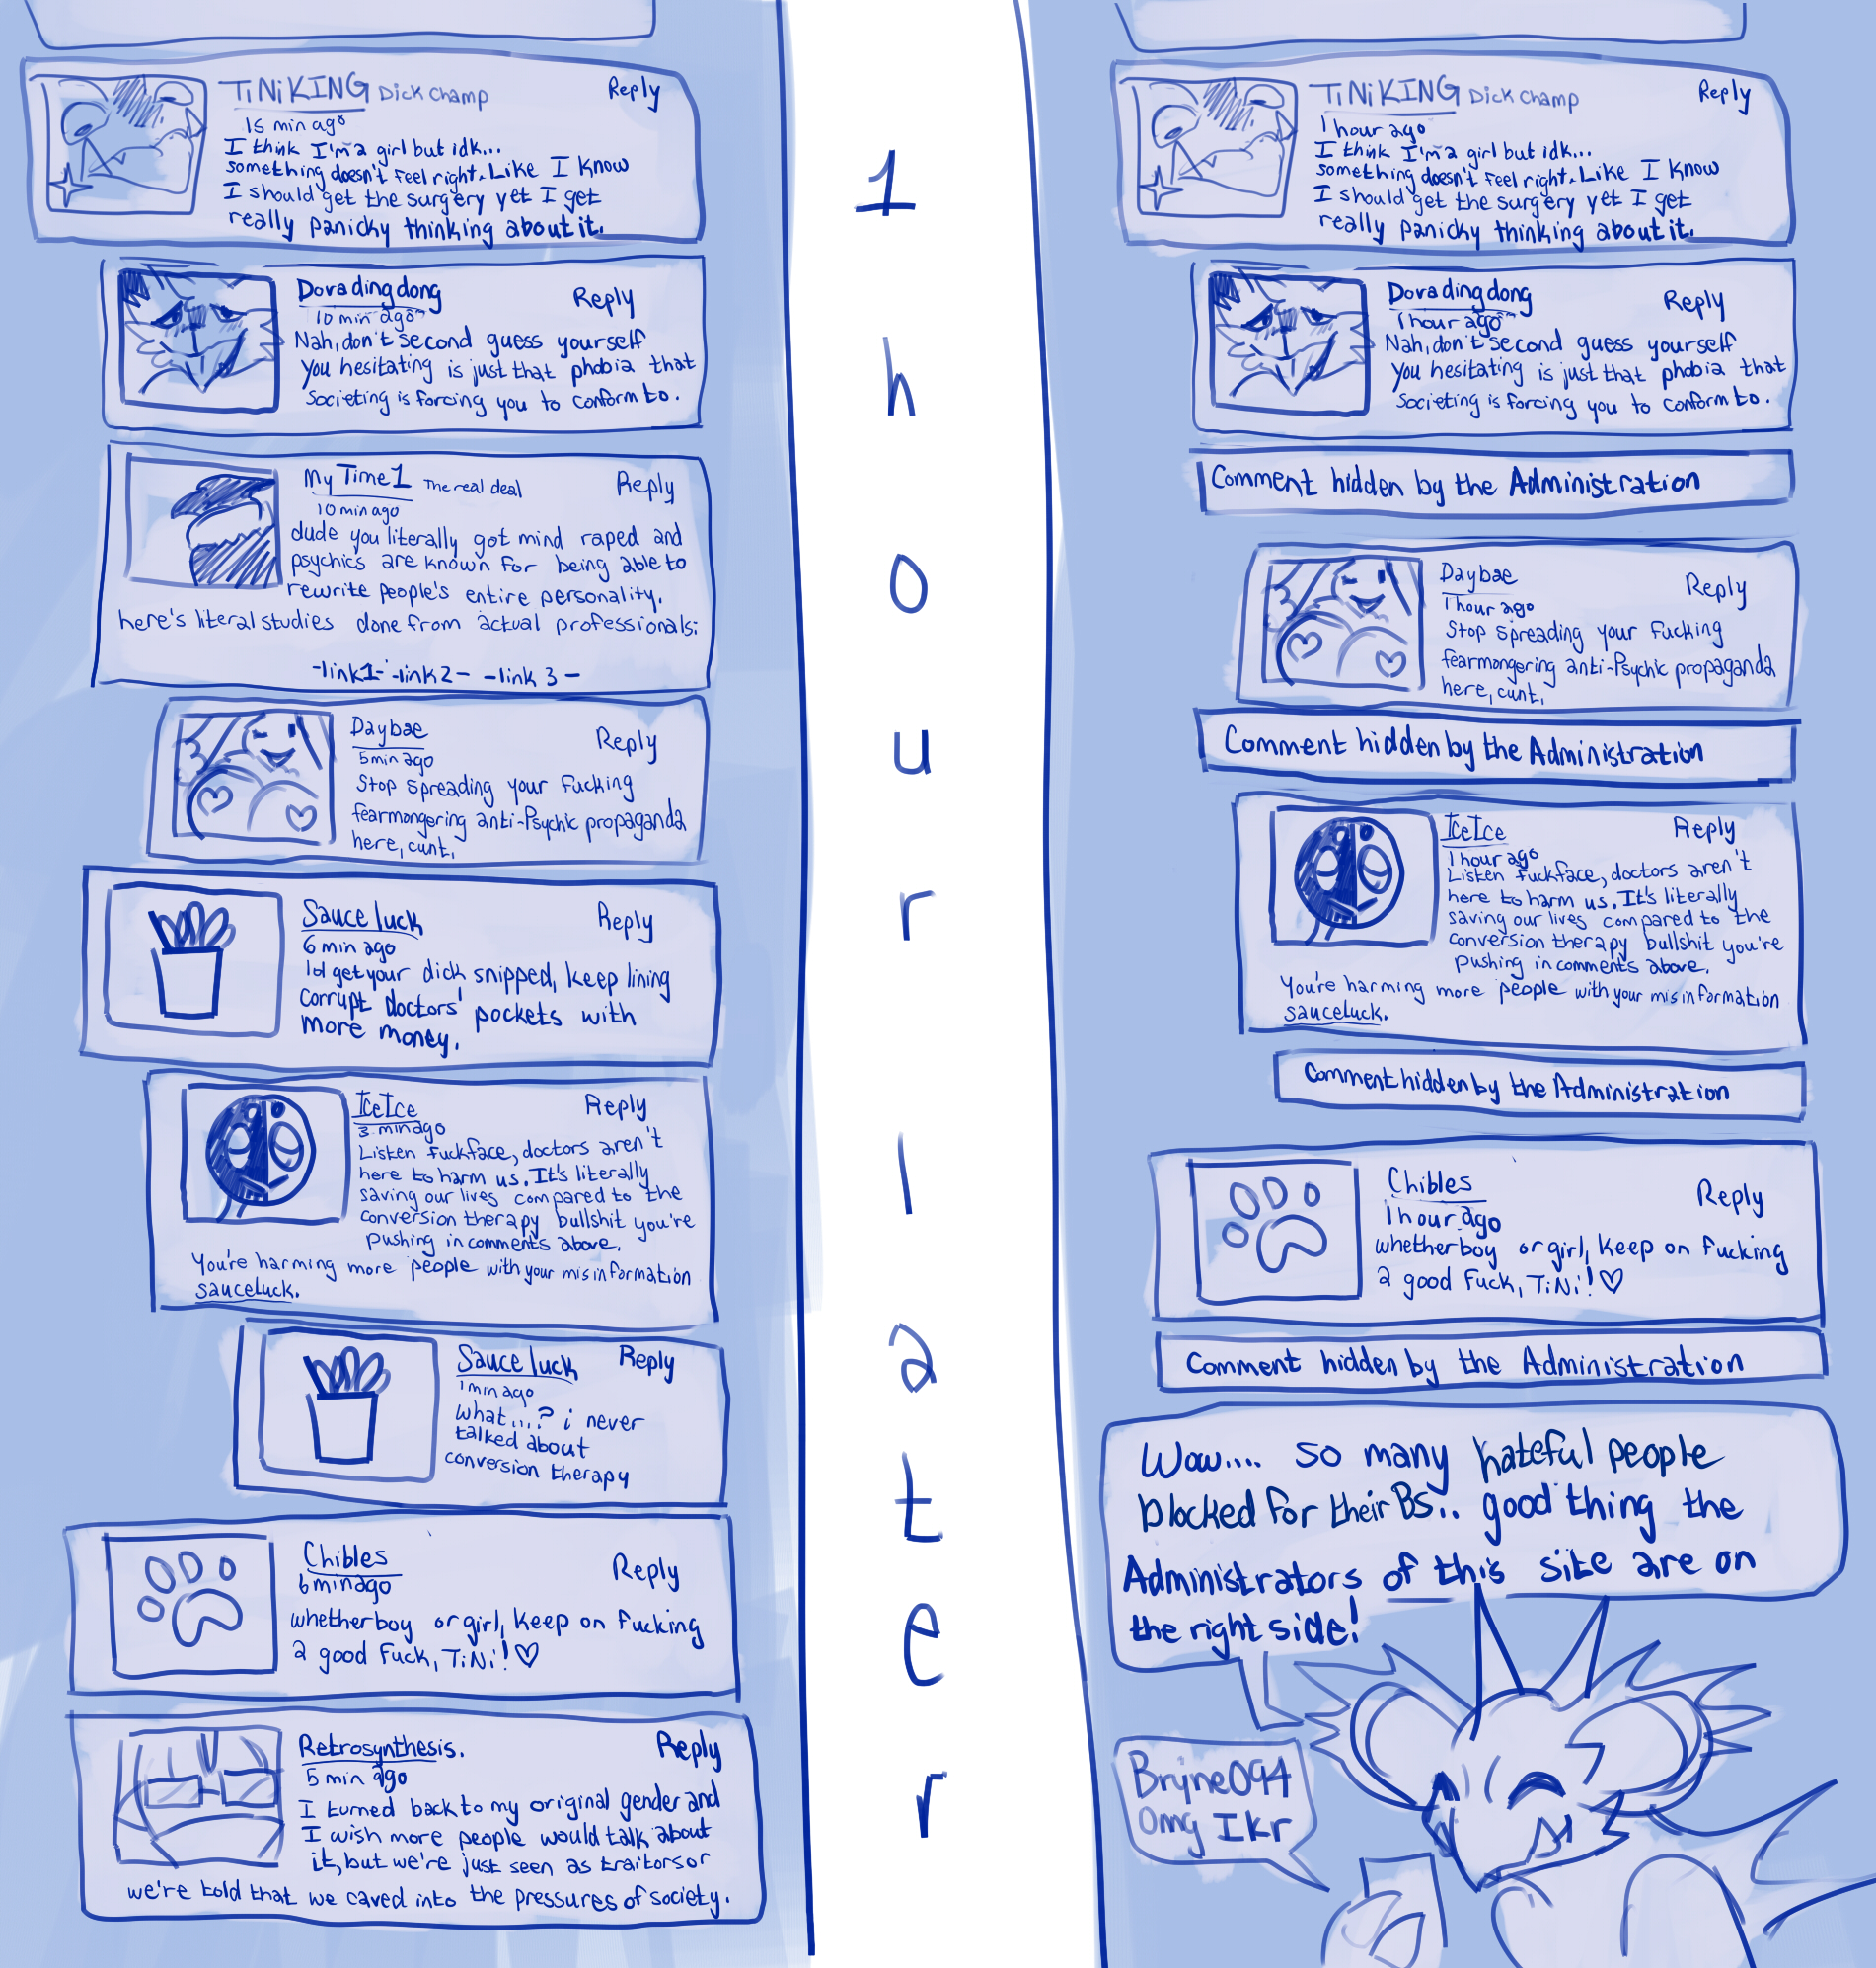 TiNiKING Dick Champ
Reply
15 min ago
I think I'm a girl but idk...
something doesn't feel right. Like I know
I should get the surgery yet I get
really panicky thinking about it.
Doradingdong
Reply
10 min ago
Nah, don't second guess yourself
You hesitating is just that phobia that
societing is forcing you to conform to.
My Time1 The real deal
Reply
10 min ago
dude you literally got mind raped and
psychics are known for being able to
rewrite people's entire personality.
here's literal studies done from actual professionals:
-link1- -link2- -link 3-
Daybae
Reply
5 min ago
Stop spreading your fucking
fearmongering anti-Psychic propaganda
here, cunt.
Sauce luck
Reply
6 min ago
Id get your dick snipped, keep lining
corrupt doctors' pockets with
more money.
IceIce
Reply
3 min ago
Listen fuckface, doctors aren't
here to harm us. It's literally
saving our lives compared to the
conversion therapy bullshit you're
pushing in comments above.
You're harming more people with your misinformation
sauceluck.
Sauce luck
Reply
1 min ago
what....? i never
talked about
conversion therapy
Chibles
Reply
6 min ago
whether boy or girl, keep on fucking
a good fuck, TiNi! ♡
Retrosynthesis.
Reply
5 min ago
I turned back to my original gender and
I wish more people would talk about
it, but we're just seen as traitors or
we're told that we caved into the pressures of society.
1 hour later
TiNiKING Dick Champ
Reply
1 hour ago
I think I'm a girl but idk...
something doesn't feel right. Like I know
I should get the surgery yet I get
really panicky thinking about it.
Doradingdong
Reply
1 hour ago
Nah, don't second guess yourself
You hesitating is just that phobia that
societing is forcing you to conform to.
Comment hidden by the Administration
Daybae
Reply
1 hour ago
Stop spreading your fucking
fearmongering anti-Psychic propaganda
here, cunt.
Comment hidden by the Administration
IceIce
Reply
1 hour ago
Listen fuckface, doctors aren't
here to harm us. It's literally
saving our lives compared to the
conversion therapy bullshit you're
pushing in comments above.
You're harming more people with your misinformation
sauceluck.
Comment hidden by the Administration
Chibles
Reply
1 hour ago
whether boy or girl, keep on fucking
a good fuck, TiNi! ♡
Comment hidden by the Administration
Wow.... so many hateful people
blocked for their BS.. good thing the
Administrators of this site are on
the right side!
Bryne094
omg Ikr